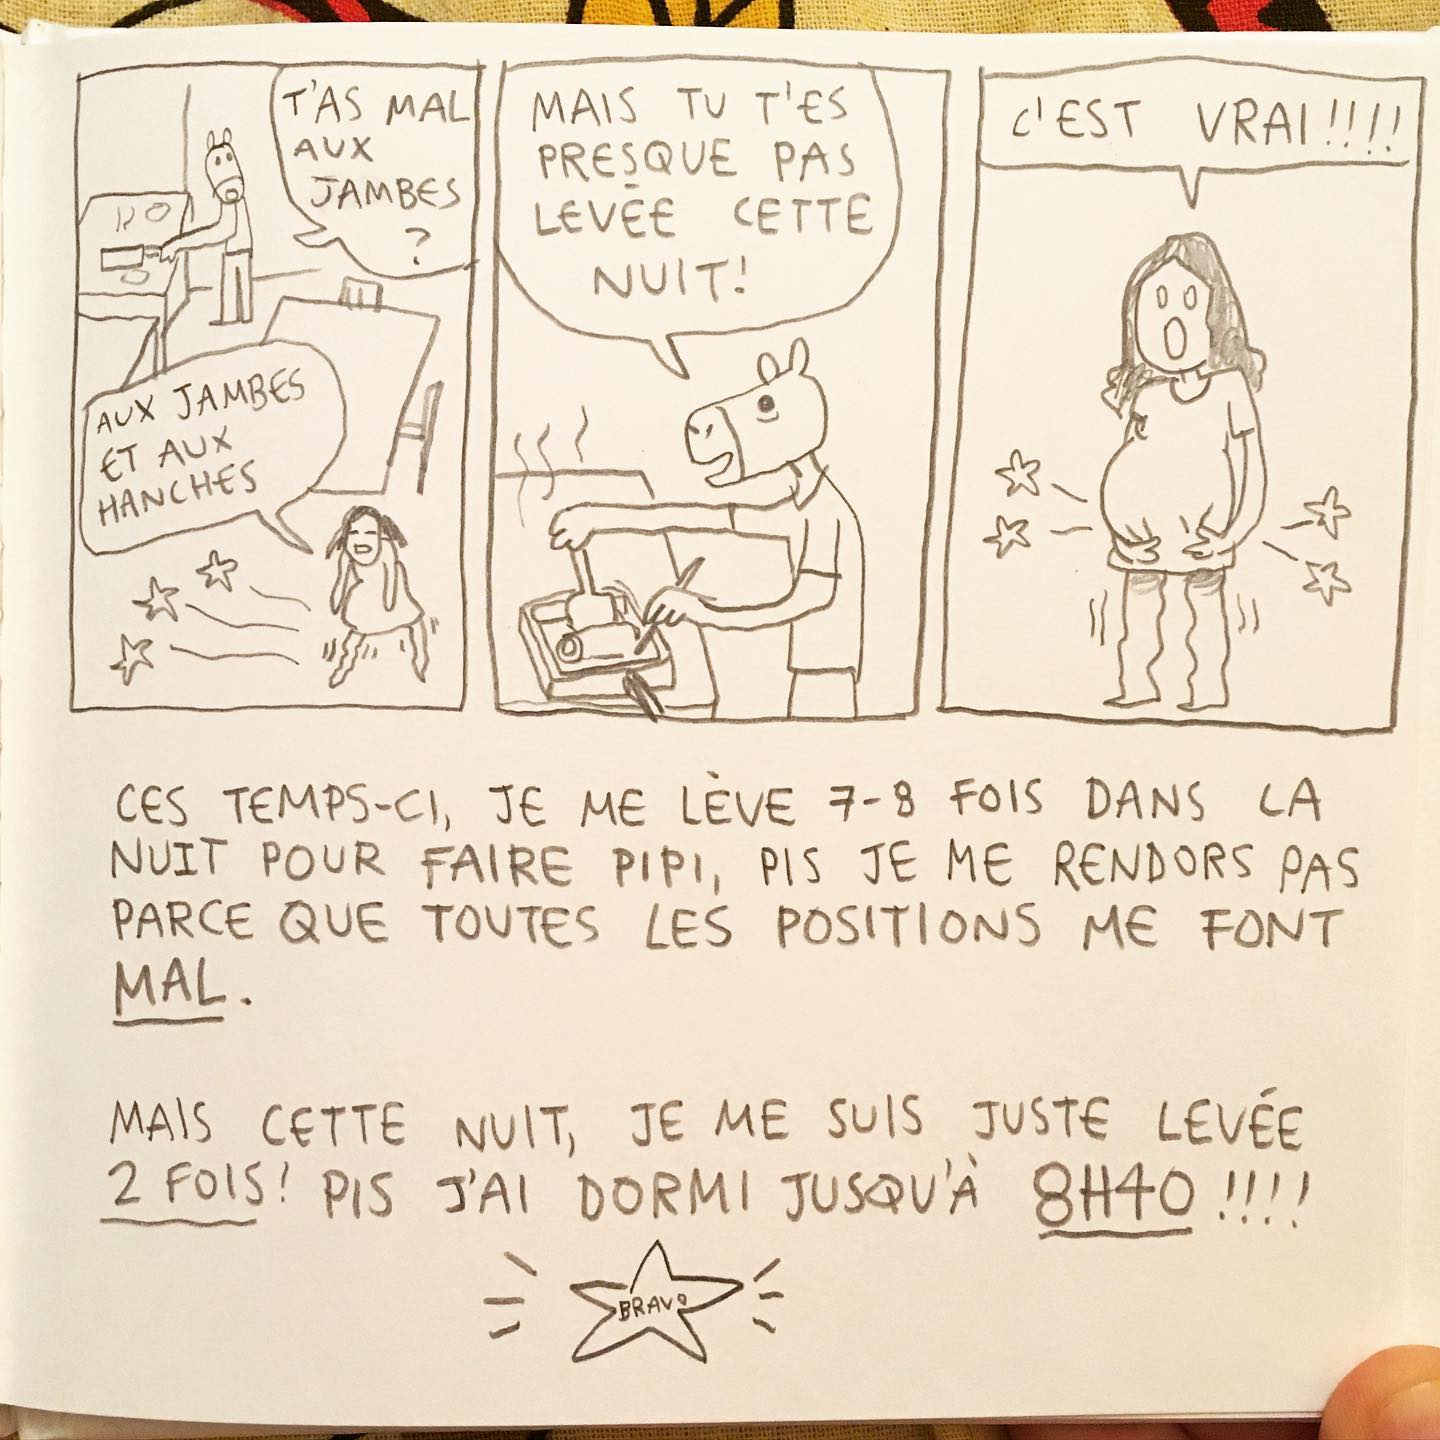 T'AS MAL
AUX
JAMBES
?
AUX JAMBES
ET AUX
HANCHES
MAIS TU T'ES
PRESQUE PAS
LEVÉE CETTE
NUIT!
C'EST VRAI!!!!
CES TEMPS-CI, JE ME LÈVE 7-8 FOIS DANS LA
NUIT POUR FAIRE PIPI, PIS JE ME RENDORS PAS
PARCE QUE TOUTES LES POSITIONS ME FONT
MAL.
MAIS CETTE NUIT, JE ME SUIS JUSTE LEVÉE
2 FOIS! PIS J'AI DORMI JUSQU'À 8H40!!!!
BRAVO